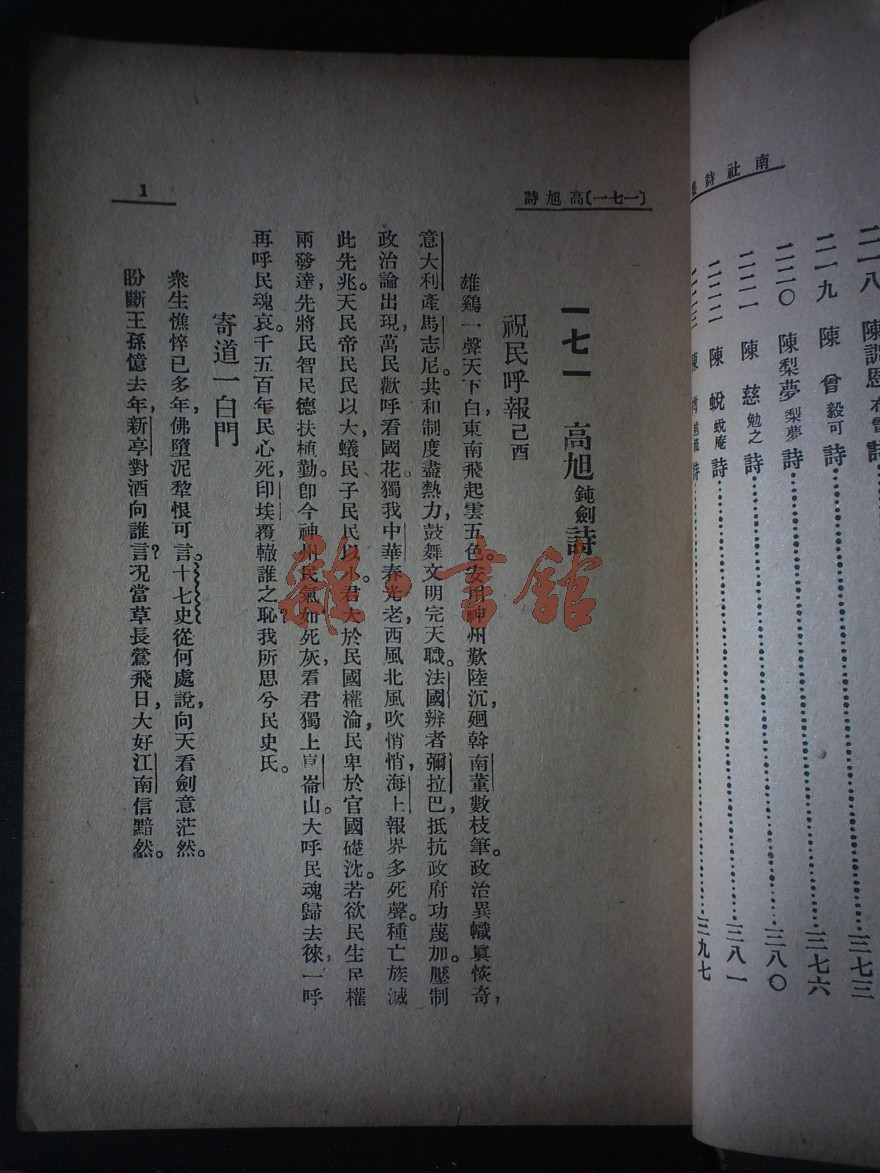 南社詩
二一八 陳訓恩 布雷 詩……三七三
二一九 陳曾 毅可 詩……三七六
二二〇 陳梨夢 梨夢 詩……三八〇
二二一 陳慈 勉之 詩……三八一
二二二 陳蛻 蛻庵 詩……三九七
二二三 陳
〔一七一〕高旭詩
1
一七一 高旭 鈍劍 詩
祝民呼報 己酉
雄鷄一聲天下白,東南飛起雲五色。安用神州歎陸沉,廻斡南董數枝筆。政治異幟眞恢奇,
意大利產馬志尼。共和制度盡熱力,鼓舞文明完天職。法國辨者彌拉巴,抵抗政府功蔑加。壓制
政治論出現,萬民歡呼看國花。獨我中華春光老,西風北風吹悄悄,海上報界多死聲。種亡族滅
此先兆。天民帝民民以大,蟻民子民民以小。君大於民國權淪,民卑於官國礎沈。若欲民生民權
兩發達,先將民智民德扶植勤。卽今神州民氣如死灰,看君獨上崑崙山。大呼民魂歸去徠,一呼
再呼民魂哀。千五百年民心死,印埃覆轍誰之恥?我所思兮民史氏。
寄道一白門
衆生憔悴已多年,佛墮泥犂恨可言。十七史從何處說,向天看劍意茫然。
盼斷王孫憶去年,新亭對酒向誰言?况當草長鶯飛日,大好江南信黯然。
雜·書館